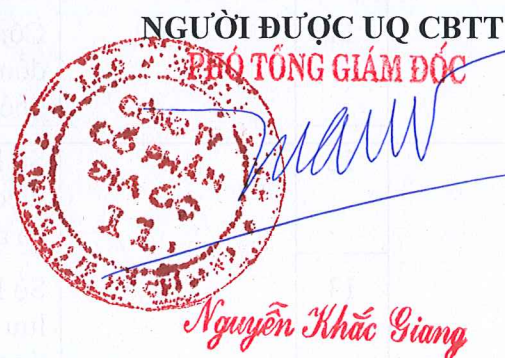 NGƯỜI ĐƯỢC UQ CBTT
PHÓ TỔNG GIÁM ĐỐC
CÔNG TY
CỔ PHẦN
ĐỊA ỐC
11
Nguyễn Khắc Giang